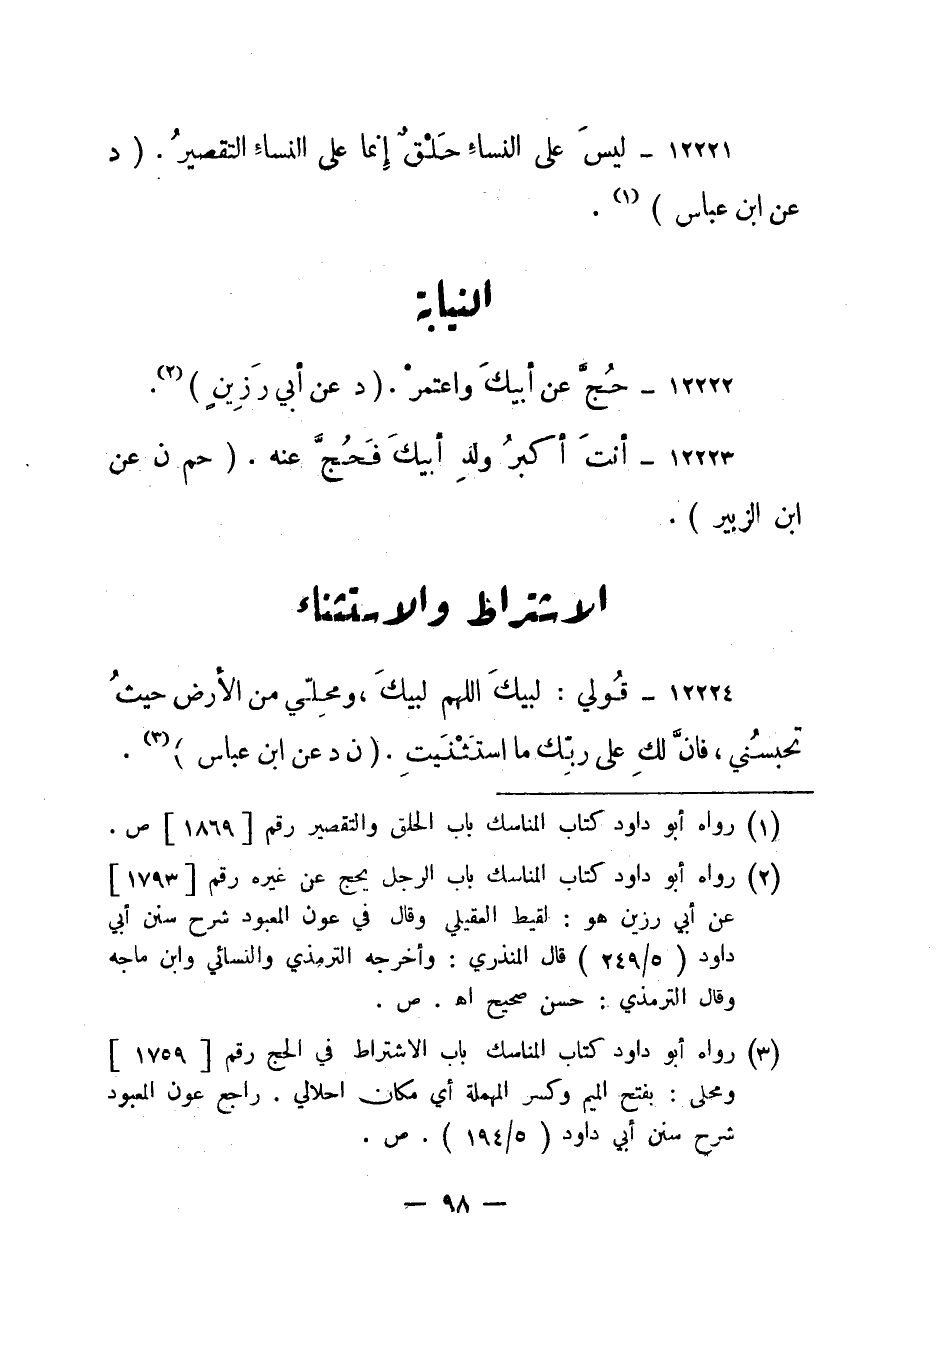 ١٢٢٢١ – ليسَ على النساءِ حَلْقٌ إنما على االنساءِ التقصيرُ . ( د
عن ابن عباس ) (١) .
النيابة
١٢٢٢٢ – حُجَّ عن أبيكَ واعتمرْ . ( د عن أبي رَزِينٍ ) (٢).
١٢٢٢٣ – أنتَ أكبرُ ولدِ أبيكَ فَحُجَّ عنه . ( حم ن عن
ابن الزبير ) .
الاشتراط والاستثناء
١٢٢٢٤ – قُولي : لبيكَ اللهم لبيكَ ، ومحلِّي من الأرض حيثُ
تحبسُني ، فانَّ لكِ على ربِّك ما استَثْنَيتِ . ( ن د عن ابن عباس ) (٣) .
(١) رواه أبو داود كتاب المناسك باب الحلق والتقصير رقم [ ١٨٦٩ ] ص .
(٢) رواه أبو داود كتاب المناسك باب الرجل يحج عن غيره رقم [ ١٧٩٣ ]
عن أبي رزين هو : لقيط العقيلي وقال في عون المعبود شرح سنن أبي
داود ( ٥/٢٤٩ ) قال المنذري : وأخرجه الترمذي والنسائي وابن ماجه
وقال الترمذي : حسن صحيح اه . ص .
(٣) رواه أبو داود كتاب المناسك باب الاشتراط في الحج رقم [ ١٧٥٩ ]
ومحلي : بفتح الميم وكسر المهملة أي مكان احلالي . راجع عون المعبود
شرح سنن أبي داود ( ٥/١٩٤ ) . ص .
— ٩٨ —